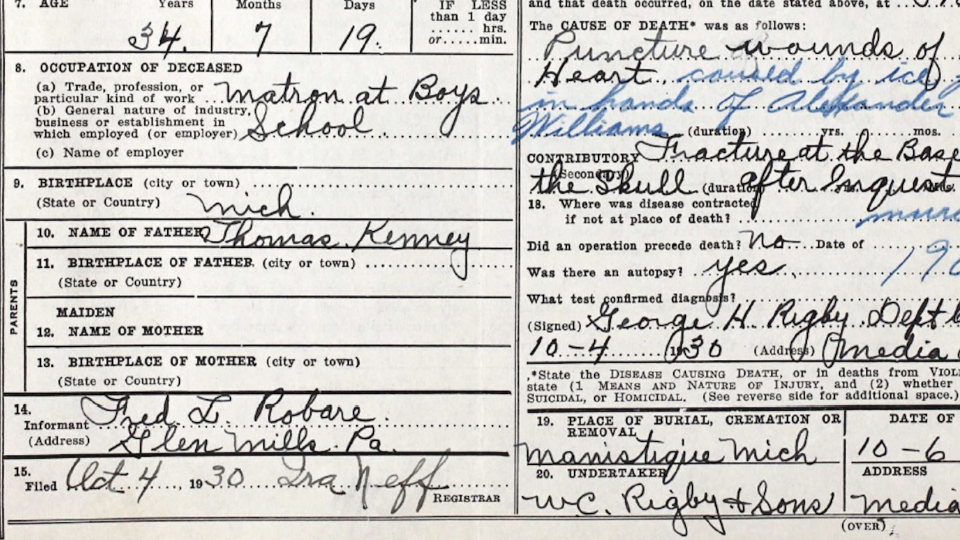 7. AGE Years Months Days IF LESS
than 1 day
34. 7 19. ...... hrs.
or ...... min.
8. OCCUPATION OF DECEASED
(a) Trade, profession, or
particular kind of work Matron at Boys
(b) General nature of industry,
business or establishment in
which employed (or employer) School
(c) Name of employer
9. BIRTHPLACE (city or town)
(State or Country) Mich.
PARENTS
10. NAME OF FATHER Thomas Kenney
11. BIRTHPLACE OF FATHER (city or town)
(State or Country)
MAIDEN
12. NAME OF MOTHER
13. BIRTHPLACE OF MOTHER (city or town)
(State or Country)
14.
Informant Fred L. Robare
(Address) Glen Mills. Pa.
15.
Filed Oct 4, 1930 Ira Neff
REGISTRAR
and that death occurred, on the date stated above, at
The CAUSE OF DEATH* was as follows:
Puncture wounds of
Heart caused by ice
in hands of Alexander
Williams (duration) yrs. mos.
CONTRIBUTORY Fracture at the Base
(Secondary)
the Skull (duration) after Inquest
18. Where was disease contracted
if not at place of death?
Did an operation precede death? No Date of
Was there an autopsy? yes
What test confirmed diagnosis?
(Signed) George H Rigby Dept
10-4 1930 (Address) Media
*State the DISEASE CAUSING DEATH, or in deaths from
state (1 MEANS AND NATURE OF INJURY, and (2) whether
SUICIDAL, or HOMICIDAL. (See reverse side for additional space.)
19. PLACE OF BURIAL, CREMATION OR
REMOVAL DATE OF
Manistique Mich 10-6
20. UNDERTAKER ADDRESS
W.C. Rigby & Sons Media
(OVER)